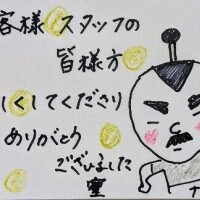 客様 スタッフの
皆様方
しくしてくださり
ありがとう
ございました